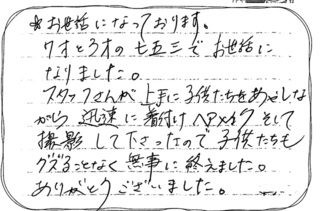 *お世話になっております。
7才と3才の七五三でお世話に
なりました。
スタッフさんが上手に子供たちをあやしな
がら迅速に着付けヘアメイクそして
撮影して下さったので子供たちも
グズることなく無事に終えました。
ありがとうございました。